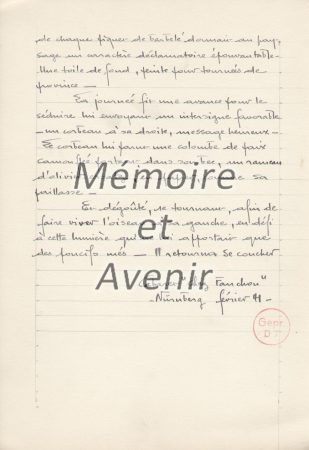 de chaque piquet de barbelé donnait au pay-
sage un caractère déclamatoire épouvantable.
Une toile de fond, peinte pour tournées de
province —
La journée fit une avance pour le
séduire lui envoyant un intersigne favorable
un corbeau à sa droite, message heureux —
Ce corbeau lui parut une colombe de paix
camouflé portant dans son bec, un rameau
d'olivier sa
paillasse —
Et dégoûté, se tournant, afin de
faire virer l'oiseau à sa gauche, en défi
à cette lumière qui ne lui apportait que
des poncifs usés — Il retourna se coucher
Mémoire
et
Avenir
chez Fanchon"
— Nürnberg février 41 —
Gepr.
D